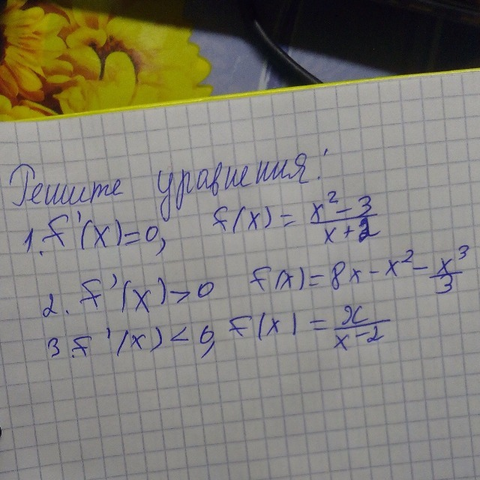 Решите уравнения!
1. f'(x)=0, f(x) = x²-3/x+2
2. f'(x)>0 f(x)=8x-x²-x³/3
3. f'(x)<0, f(x) = x/x-2